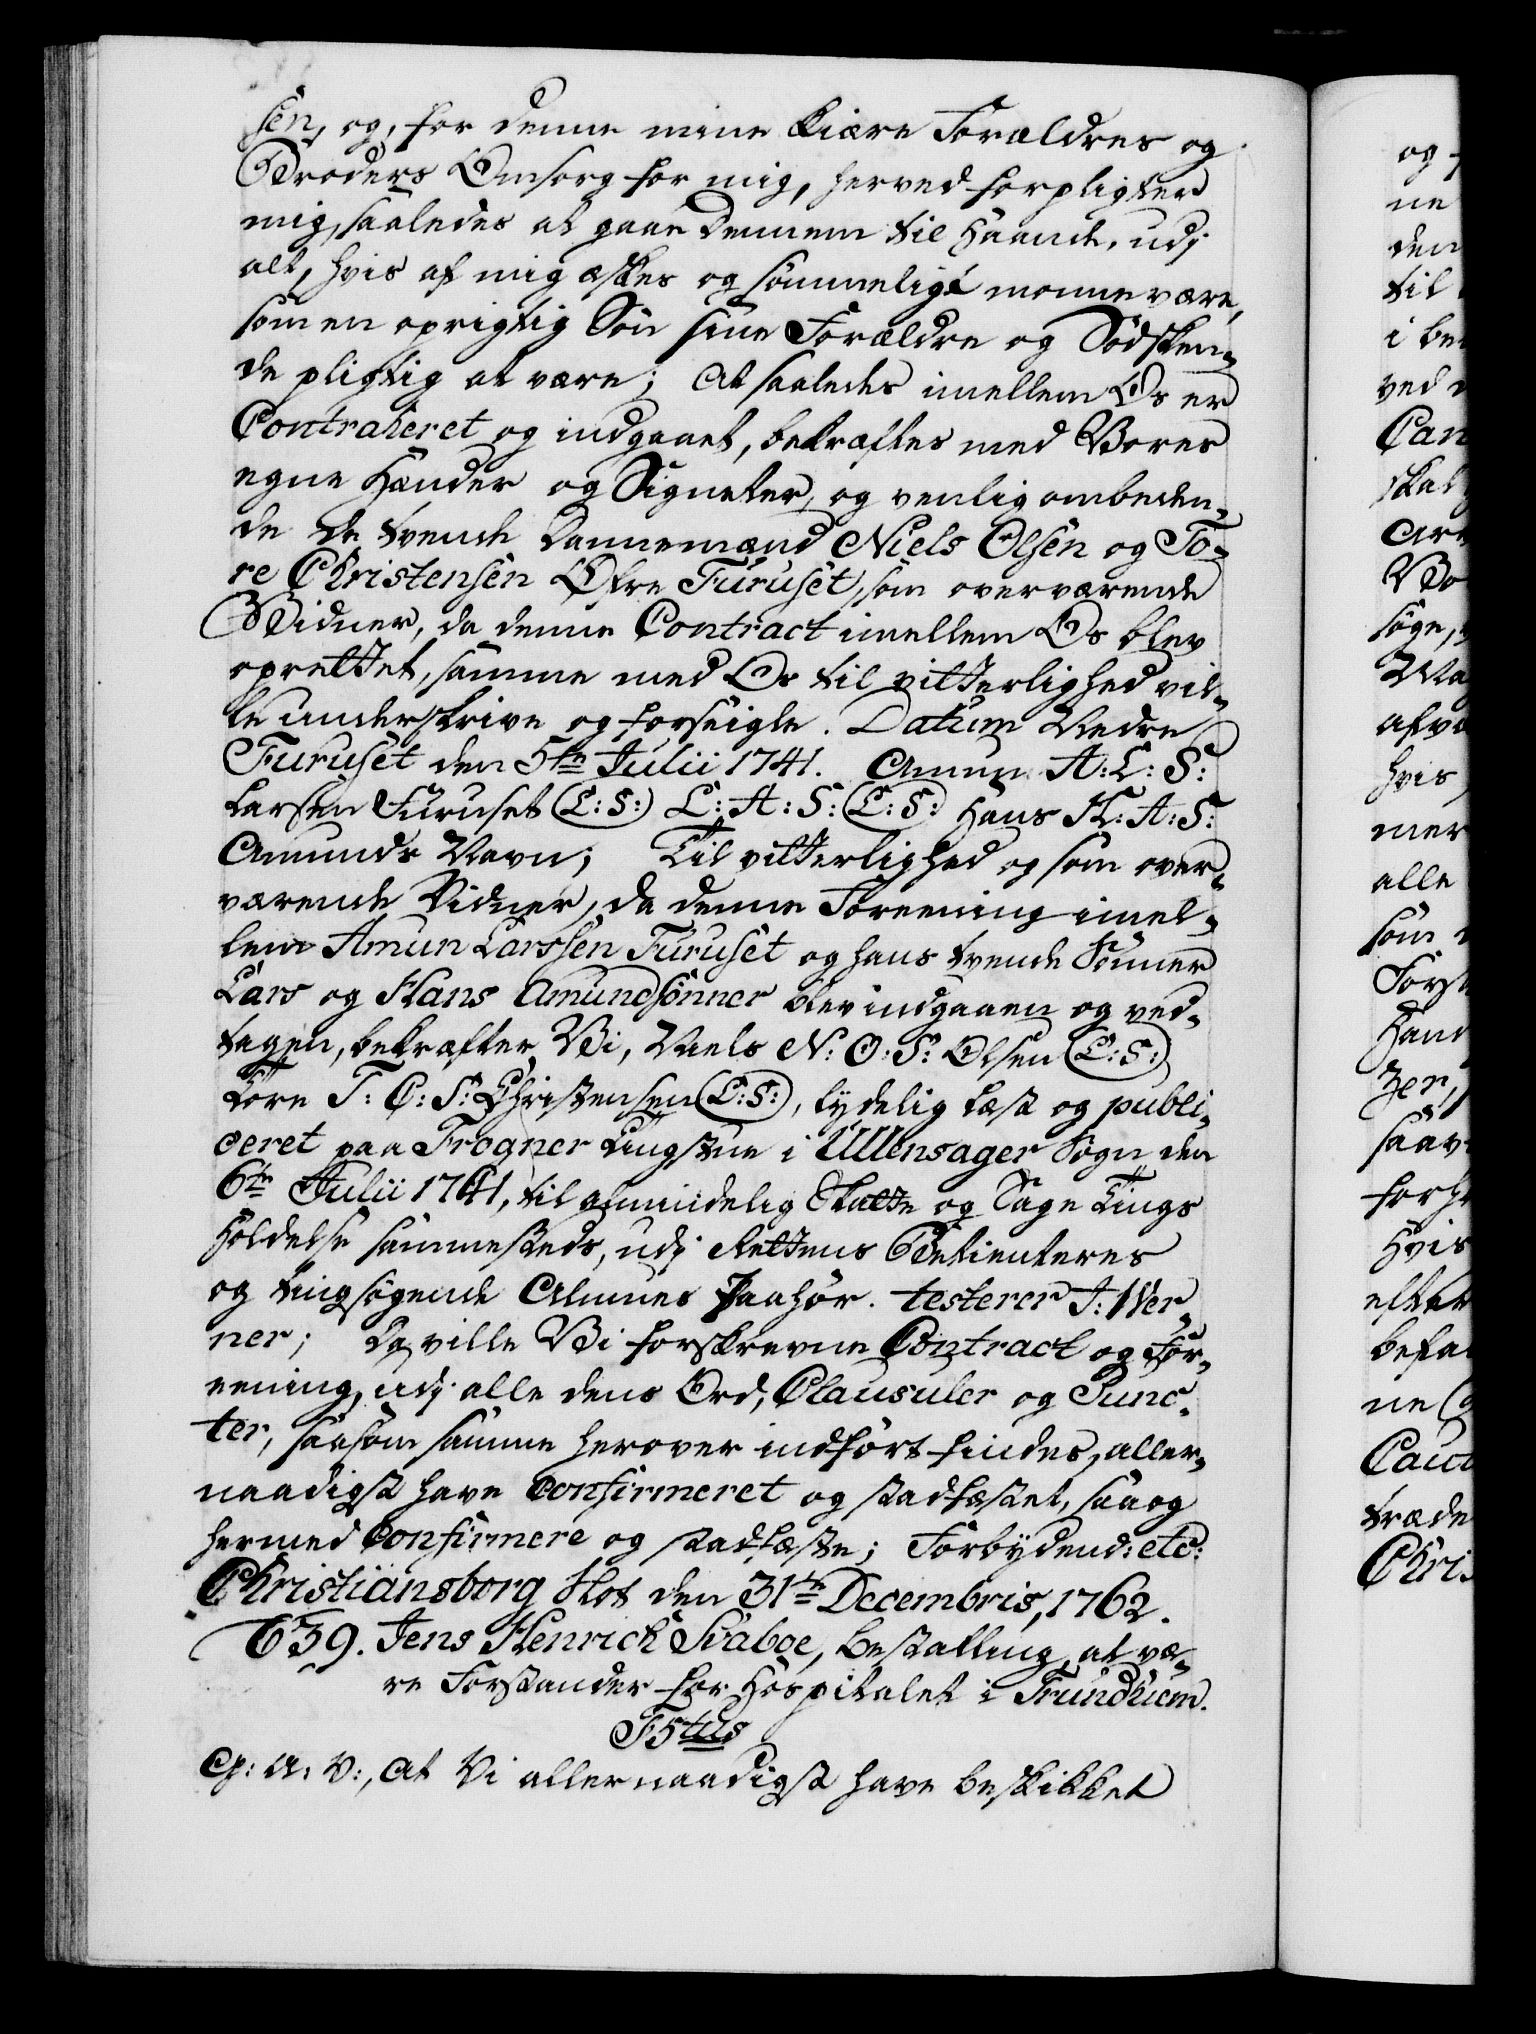 sen, og, for denne mine kiære Forældres og
Broders Omsorg for mig, herved forpligter
mig, saaledes at gaae dennem til Haande, udj
alt, hvis af mig æskes og sømmeligt monne være,
som en oprigtig Søn sine Forældre og Sødsken¬
de pligtig at være; At saaledes imellem Os er
Contraheret og indgaaet, bekræftes med Vores
egne Hænder og Signeter, og venlig ombeden¬
de de tvende Dannemænd Niels Olsen og To¬
re Christensen Øfre Furuset, som overværende
Vidner, da denne Contract imellem Os blev
oprettet, samme med Os til vitterlighed vil¬
le underskrive og forseigle. Datum Nedre
Furuset den 5te Julii 1741. Amun A: L: S:
Larsen Furuset (L: S:) L: A: S: (L: S:) Hans H: A: S:
Amunds Navn; Til vitterlighed og som over¬
værende Vidner, da denne Foreening imel¬
lem Amun Larssen Furuset og hans tvende Sønner
Lars og Hans Amundsønner blev indgaaen og ved¬
tagen, bekræfter Vi, Niels N: O: S: Olsen (L: S:)
Tore T: C: S: Christensen (L: S:), lydelig læst og publi¬
ceret paa Frogner Tingstue i Ullensager Sogn den
6te Julii 1741, til almindelig Skatte og Sage Tings
Holdelse sammesteds, udj Rettens Betienteres
og tingsøgende Almues Paahør. testerer J: Wer¬
ner; Da ville Vi forskrevne Contract og For¬
eening, udj alle dens Ord, Clausuler og Punc¬
ter, saasom samme herover indført findes, aller¬
naadigst have Confirmeret og stadfæstet, saa og
hermed Confirmere og stadfæste; Forbydend: etc:
Christiansborg Slot den 31te Decembris, 1762.
639. Jens Henrich Svaboe, bestalling, at væ¬
re Forstander for Hospitalet i Trundhiem.
F5tus
G: A: V:, At Vi allernaadigst have beskikket